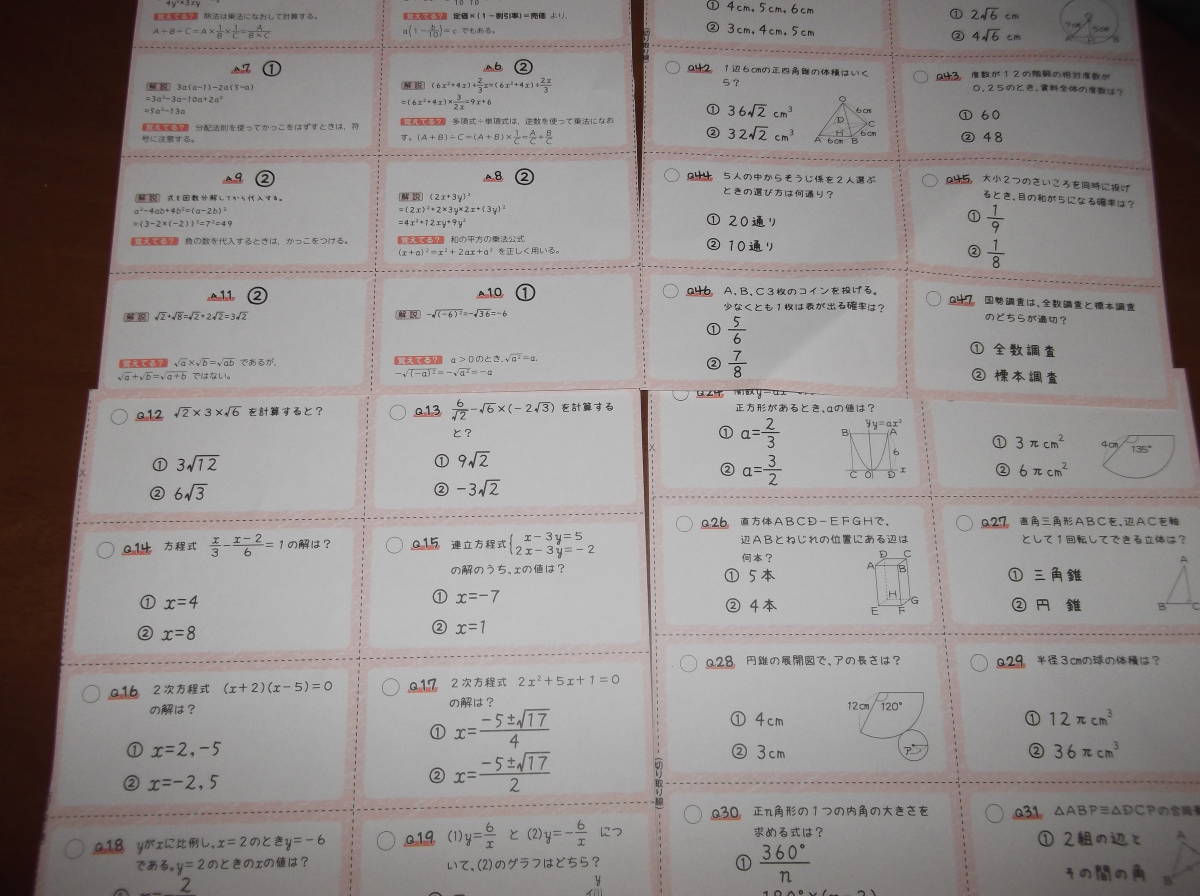 4y²×3xy
覚えてる? 除法は乗法になおして計算する。
A÷B÷C=A×1/B×1/C=A/(B×C)
覚えてる? 定価×(1-割引率)=売価 より,
a(1-b/10)=c でもある。
① 4cm, 5cm, 6cm
② 3cm, 4cm, 5cm
① 2√6 cm
② 4√6 cm
A7 ①
解説 3a(a-1)-2a(5-a)
=3a²-3a-10a+2a²
=5a²-13a
覚えてる? 分配法則を使ってかっこをはずすときは、符
号に注意する。
A6 ②
解説 (6x²+4x)÷2/3x=(6x²+4x)÷2x/3
=(6x²+4x)×3/2x=9x+6
覚えてる? 多項式÷単項式は、逆数を使って乗法になお
す。(A+B)÷C=(A+B)×1/C=A/C+B/C
Q42 1辺6cmの正四角錐の体積はいく
ら?
① 36√2 cm³
② 32√2 cm³
O
6cm
D
C
H
6cm
A 6cm B
Q43 度数が12の階級の相対度数が
0.25のとき、資料全体の度数は?
① 60
② 48
A9 ②
解説 式を因数分解してから代入する。
a²-4ab+4b²=(a-2b)²
={3-2×(-2)}²=7²=49
覚えてる? 負の数を代入するときは、かっこをつける。
A8 ②
解説 (2x+3y)²
=(2x)²+2×3y×2x+(3y)²
=4x²+12xy+9y²
覚えてる? 和の平方の乗法公式
(x+a)²=x²+2ax+a² を正しく用いる。
Q44 5人の中からそうじ係を2人選ぶ
ときの選び方は何通り?
① 20通り
② 10通り
Q45 大小2つのさいころを同時に投げ
るとき、目の和が5になる確率は?
① 1/9
② 1/8
A11 ②
解説 √2+√8=√2+2√2=3√2
覚えてる? √a×√b=√ab であるが,
√a+√b=√a+b ではない。
A10 ①
解説 -√(-6)²=-√36=-6
覚えてる? a>0のとき, √a²=a,
-√(-a)²=-√a²=-a
Q46 A、B、C3枚のコインを投げる。
少なくとも1枚は表が出る確率は?
① 5/6
② 7/8
Q47 国勢調査は、全数調査と標本調査
のどちらが適切?
① 全数調査
② 標本調査
Q12 √2×3×√6 を計算すると?
① 3√12
② 6√3
Q13 6/√2-√6×(-2√3) を計算する
と?
① 9√2
② -3√2
Q24
正方形があるとき、aの値は?
① a=2/3
② a=3/2
y y=ax²
B A
6
C O D x
① 3πcm²
② 6πcm²
4cm
135°
Q14 方程式 x/3-(x-2)/6=1の解は?
① x=4
② x=8
Q15 連立方程式{x-3y=5
2x-3y=-2
の解のうち、xの値は?
① x=-7
② x=1
Q26 直方体ABCD-EFGHで、
辺ABとねじれの位置にある辺は
何本?
① 5本
② 4本
D C
A B
H G
E F
Q27 直角三角形ABCを、辺ACを軸
として1回転してできる立体は?
① 三角錐
② 円 錐
A
B C
Q16 2次方程式 (x+2)(x-5)=0
の解は?
① x=2, -5
② x=-2, 5
Q17 2次方程式 2x²+5x+1=0
の解は?
① x=(-5±√17)/4
② x=(-5±√17)/2
Q28 円錐の展開図で、アの長さは?
① 4cm
② 3cm
12cm 120°
ア
Q29 半径3cmの球の体積は?
① 12πcm³
② 36πcm³
(切り取り線)
Q18 yがxに比例し、x=2のときy=-6
である。y=2のときのxの値は?
Q19 (1)y=6/x と (2)y=-6/x につ
いて、(2)のグラフはどちら?
y
Q30 正n角形の1つの内角の大きさを
求める式は?
① 360°/n
Q31 △ABP≡△DCPの合同
① 2組の辺と
その間の角
A
B